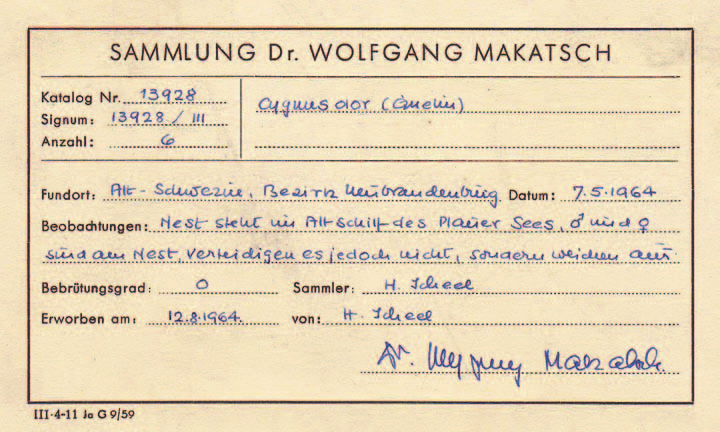 SAMMLUNG Dr. WOLFGANG MAKATSCH
Katalog Nr. 13928
Cygnus olor (Gmelin)
Signum: 13928 / III
Anzahl: 6
Fundort: Alt-Schwerin, Bezirk Neubrandenburg Datum: 7.5.1964
Beobachtungen: Nest steht im Altschilf des Plauer Sees, ♂ und ♀
sind am Nest, verteidigen es jedoch nicht, sondern weichen aus.
Bebrütungsgrad: 0 Sammler: H. Scheel
Erworben am: 12.8.1964. von: H. Scheel
Dr. Wolfgang Makatsch
III-4-11 Ja G 9/59